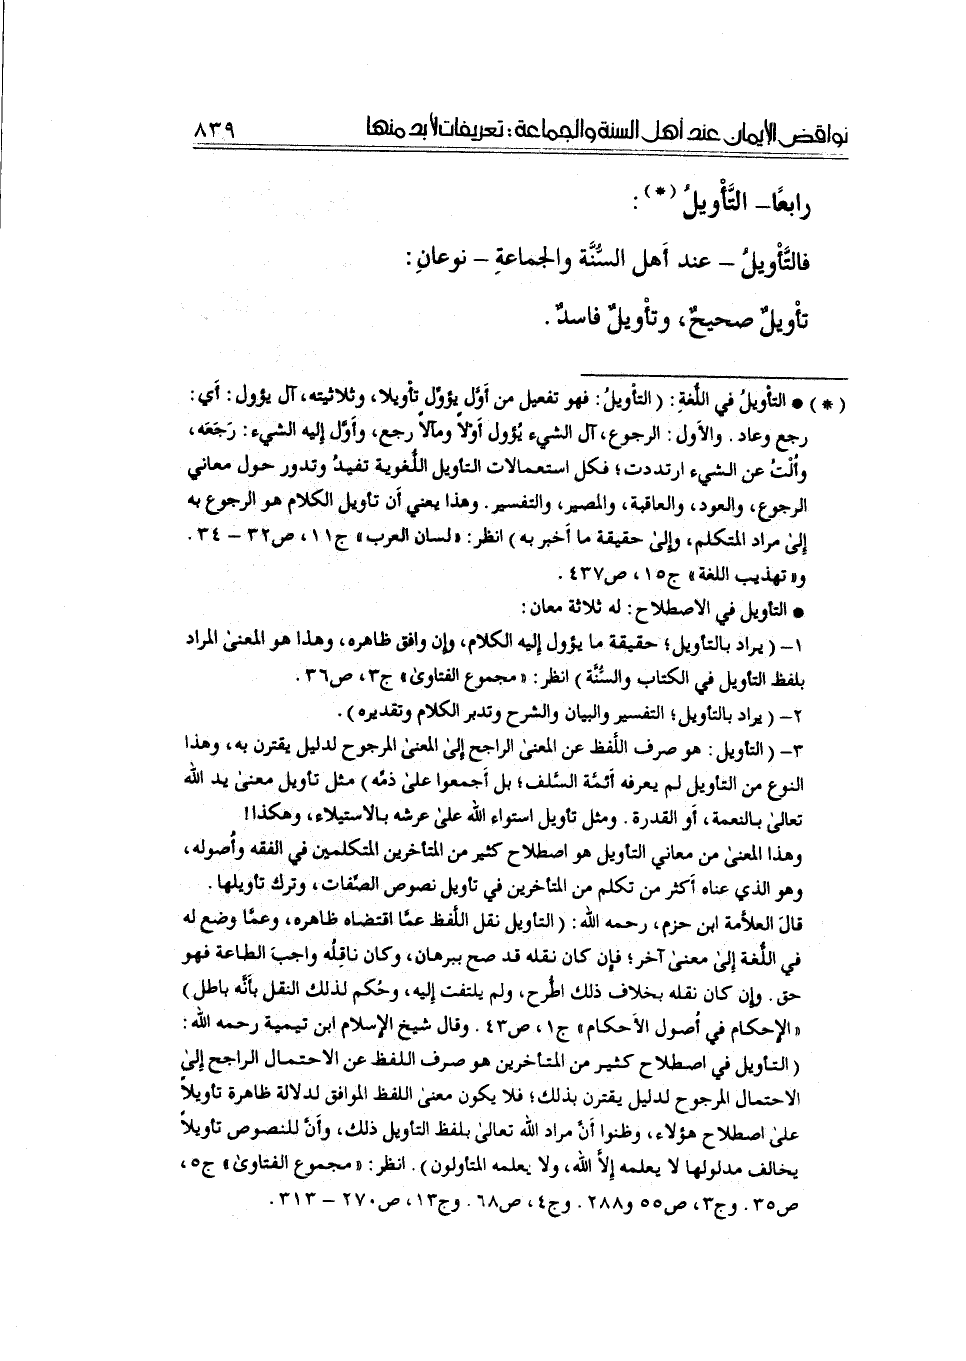 نواقض الإيمان عند أهل السنة والجماعة: تعريفات لابد منها ٨٣٩
رابعًا ـ التَّأْويلُ (*):
فالتَّأْويلُ ـ عند أهل السُّنَّة والجماعةِ ـ نوعانِ:
تأْويلٌ صحيحٌ، وتأْويلٌ فاسدٌ.
(*) ● التأويلُ في اللُّغةِ: (التأويلُ: فهو تفعيل من أوَّل يؤوِّل تأويلا، وثلاثيته، آل يؤول: أي:
رجع وعاد. والأول: الرجوع، آل الشيء يُؤول أوْلاً ومآلاً رجع، وأوَّل إليه الشيء: رَجَعَه،
وأُلْتُ عن الشيء ارتددت؛ فكل استعمالات التأويل اللُّغوية تفيدُ وتدور حول معاني
الرجوع، والعود، والعاقبة، والمصير، والتفسير. وهذا يعني أن تأويل الكلام هو الرجوع به
إلىٰ مراد المتكلم، وإلىٰ حقيقة ما أخبر به) انظر: «لسان العرب» ج١١، ص٣٢ – ٣٤.
و«تهذيب اللغة» ج١٥، ص٤٣٧.
● التأويل في الاصطلاح: له ثلاثة معان:
١– (يراد بالتأويل؛ حقيقة ما يؤول إليه الكلام، وإن وافق ظاهره، وهذا هو المعنىٰ المراد
بلفظ التأويل في الكتاب والسُّنَّة) انظر: «مجموع الفتاوىٰ» ج٣، ص٣٦.
٢– (يراد بالتأويل؛ التفسير والبيان والشرح وتدبر الكلام وتقديره).
٣– (التأويل: هو صرف اللَّفظ عن المعنىٰ الراجح إلىٰ المعنىٰ المرجوح لدليل يقترن به، وهذا
النوع من التأويل لم يعرفه أئمَّة السَّلف؛ بل أجمعوا علىٰ ذمِّه) مثل تأويل معنىٰ يد الله
تعالىٰ بالنعمة، أو القدرة. ومثل تأويل استواء الله علىٰ عرشه بالاستيلاء، وهكذا!
وهذا المعنىٰ من معاني التأويل هو اصطلاح كثير من المتأخرين المتكلمين في الفقه وأصوله،
وهو الذي عناه أكثر من تكلم من المتأخرين في تأويل نصوص الصِّفات، وترك تأويلها.
قالَ العلاَّمة ابن حزم، رحمه الله: (التأويل نقل اللَّفظ عمَّا اقتضاه ظاهره، وعمَّا وضع له
في اللُّغة إلىٰ معنىٰ آخر؛ فإن كان نقله قد صح ببرهان، وكان ناقِلُه واجبَ الطاعة فهو
حق. وإن كان نقله بخلاف ذلك اطُّرح، ولم يلتفت إليه، وحُكم لذلك النقل بأنَّه باطل)
«الإحكام في أصول الأحكام» ج١، ص٤٣. وقال شيخ الإسلام ابن تيمية رحمه الله:
(التأويل في اصطلاح كثير من المتأخرين هو صرف اللفظ عن الاحتمال الراجح إلىٰ
الاحتمال المرجوح لدليل يقترن بذلك؛ فلا يكون معنىٰ اللفظ الموافق لدلالة ظاهرة تأويلاً
علىٰ اصطلاح هؤلاء، وظنوا أنَّ مراد الله تعالىٰ بلفظ التأويل ذلك، وأنَّ للنصوص تأويلاً
يخالف مدلولها لا يعلمه إلاَّ الله، ولا يعلمه المتأولون). انظر: «مجموع الفتاوىٰ» ج٥،
ص٣٥. وج٣، ص٥٥ و٢٨٨. وج٤، ص٦٨. وج١٣، ص٢٧٠ – ٣١٣.